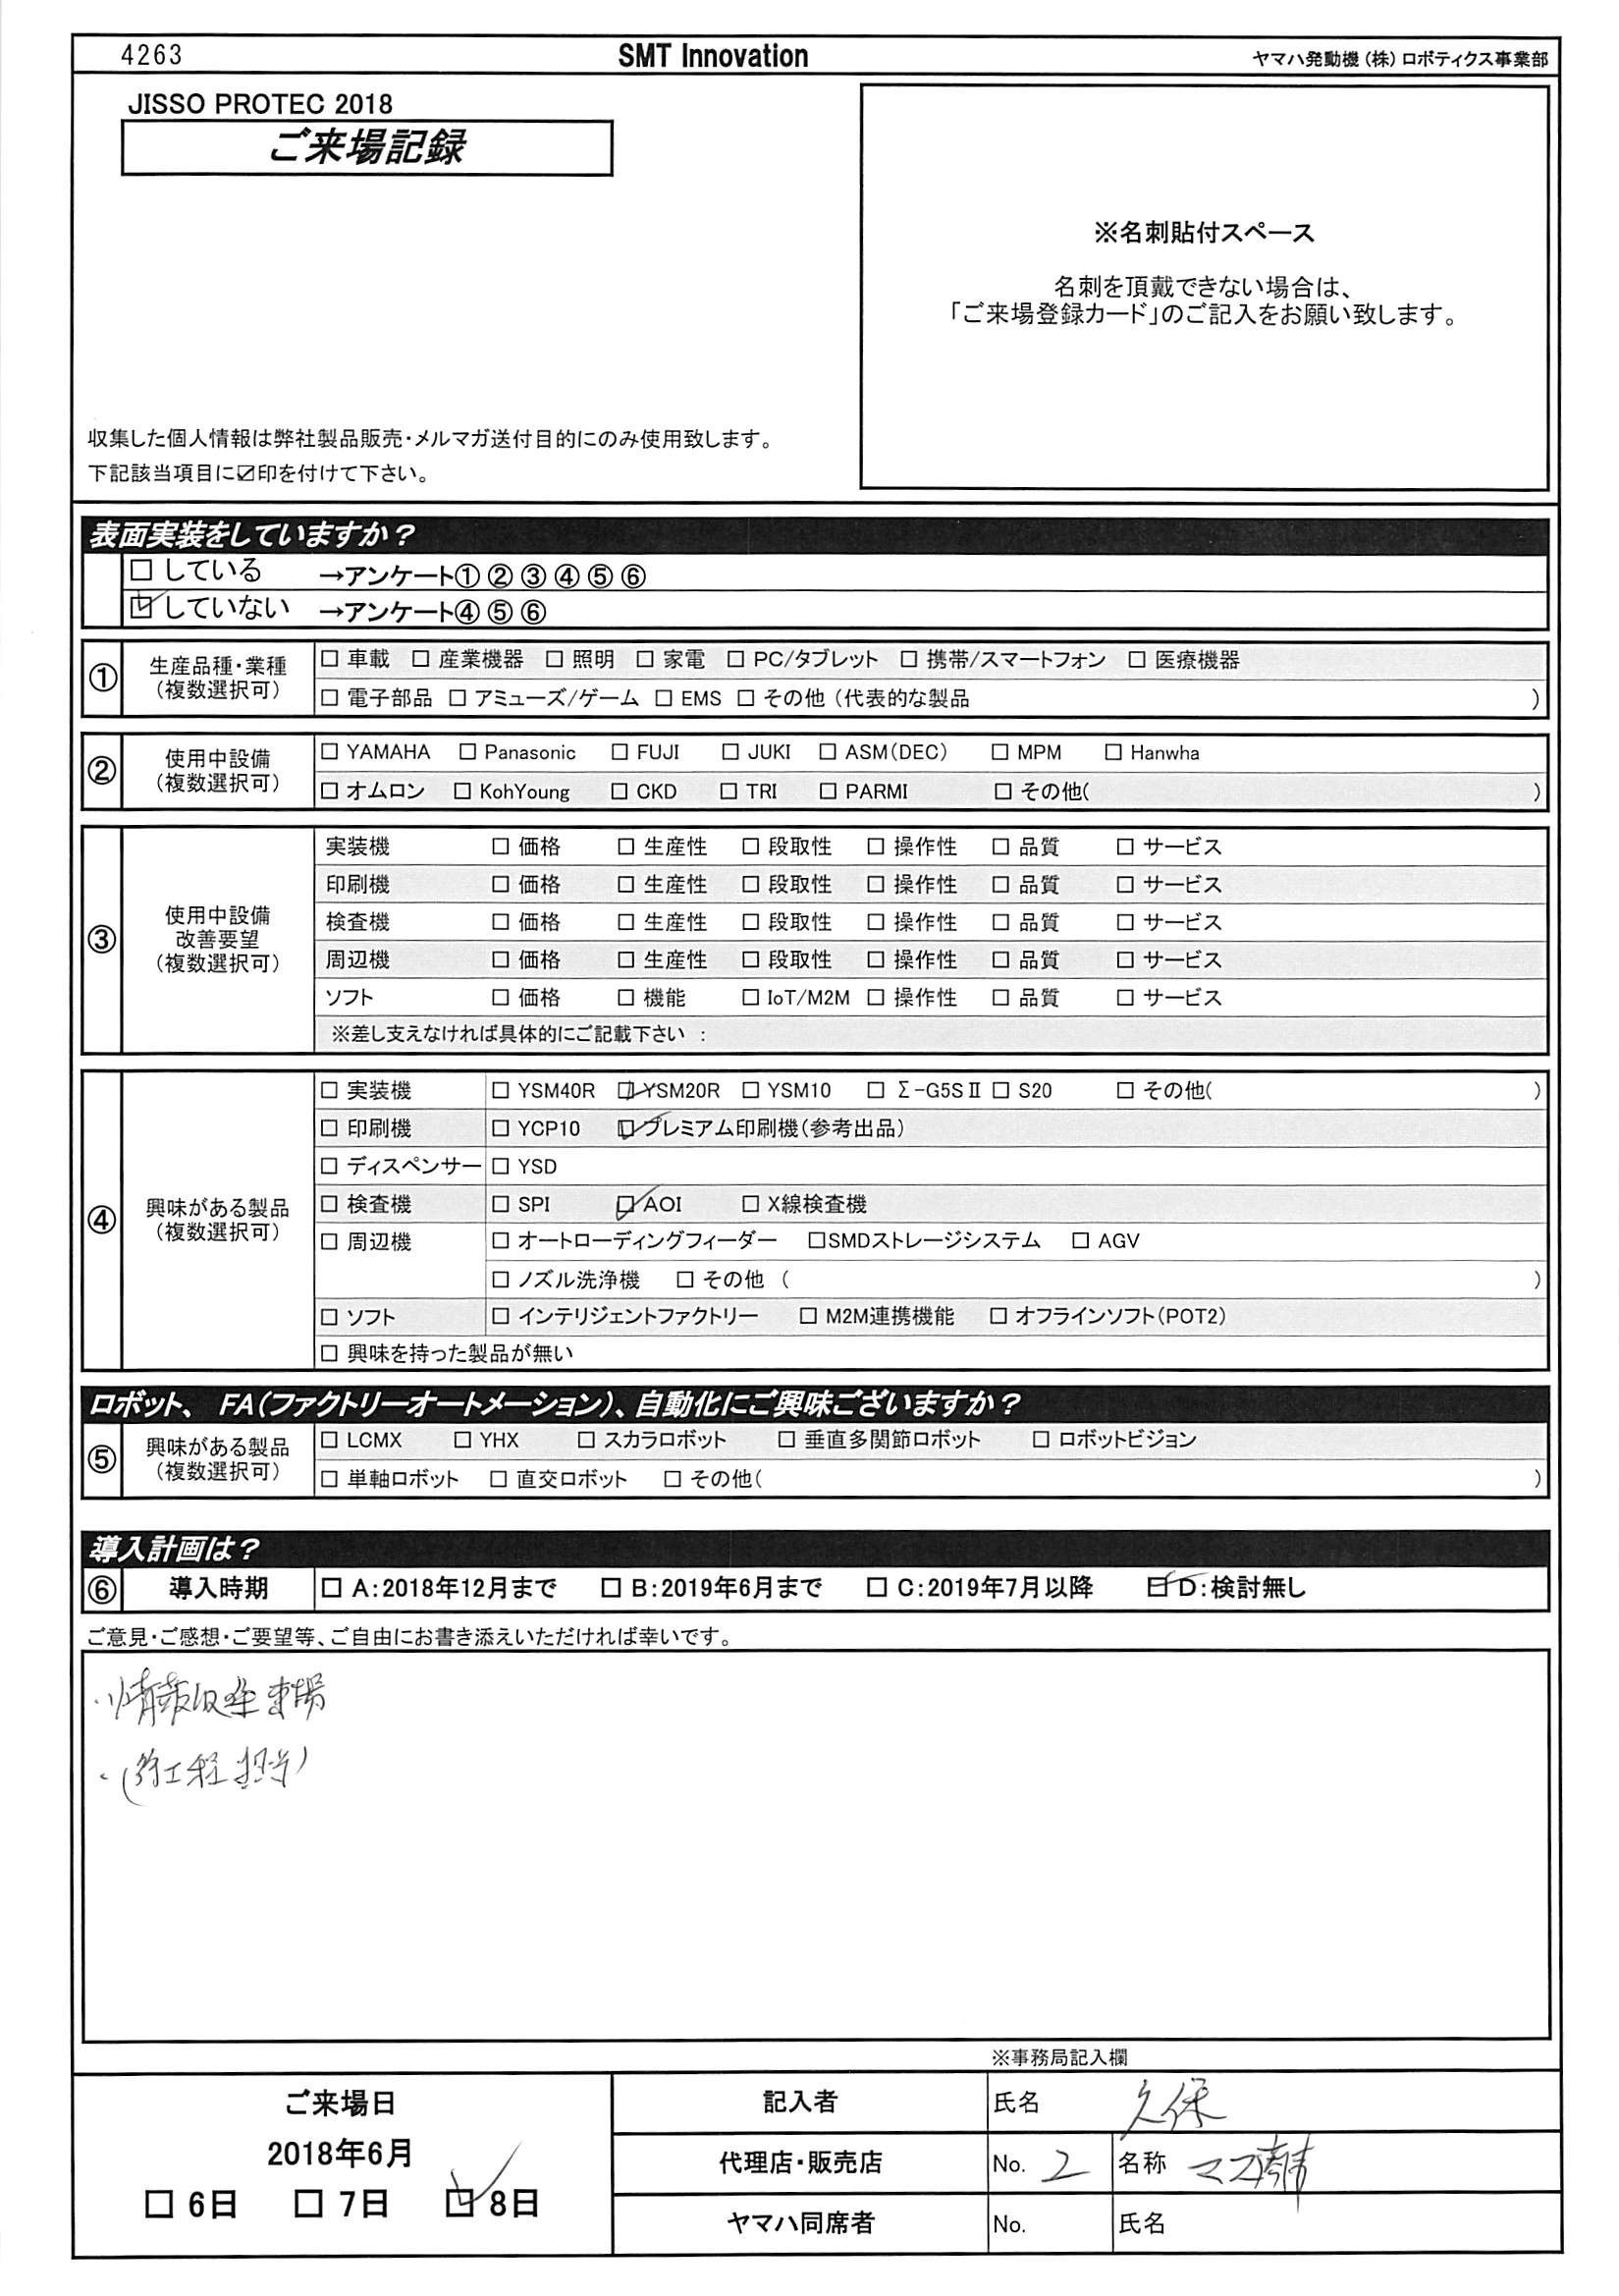 4263 SMT Innovation ヤマハ発動機（株）ロボティクス事業部
JISSO PROTEC 2018
ご来場記録
※名刺貼付スペース
名刺を頂戴できない場合は、
「ご来場登録カード」のご記入をお願い致します。
収集した個人情報は弊社製品販売・メルマガ送付目的にのみ使用致します。
下記該当項目に☑印を付けて下さい。
表面実装をしていますか？
□ している →アンケート①②③④⑤⑥
☑ していない →アンケート④⑤⑥
① 生産品種・業種（複数選択可）
□ 車載 □ 産業機器 □ 照明 □ 家電 □ PC/タブレット □ 携帯/スマートフォン □ 医療機器
□ 電子部品 □ アミューズ/ゲーム □ EMS □ その他（代表的な製品 ）
② 使用中設備（複数選択可）
□ YAMAHA □ Panasonic □ FUJI □ JUKI □ ASM(DEC) □ MPM □ Hanwha
□ オムロン □ KohYoung □ CKD □ TRI □ PARMI □ その他( )
③ 使用中設備改善要望（複数選択可）
実装機 □ 価格 □ 生産性 □ 段取性 □ 操作性 □ 品質 □ サービス
印刷機 □ 価格 □ 生産性 □ 段取性 □ 操作性 □ 品質 □ サービス
検査機 □ 価格 □ 生産性 □ 段取性 □ 操作性 □ 品質 □ サービス
周辺機 □ 価格 □ 生産性 □ 段取性 □ 操作性 □ 品質 □ サービス
ソフト □ 価格 □ 機能 □ IoT/M2M □ 操作性 □ 品質 □ サービス
※差し支えなければ具体的にご記載下さい ：
④ 興味がある製品（複数選択可）
□ 実装機 □ YSM40R ☑ YSM20R □ YSM10 □ Σ-G5SⅡ □ S20 □ その他( )
□ 印刷機 □ YCP10 ☑ プレミアム印刷機（参考出品）
□ ディスペンサー □ YSD
□ 検査機 □ SPI ☑ AOI □ X線検査機
□ 周辺機 □ オートローディングフィーダー □SMDストレージシステム □ AGV
□ ノズル洗浄機 □ その他 ( )
□ ソフト □ インテリジェントファクトリー □ M2M連携機能 □ オフラインソフト(POT2)
□ 興味を持った製品が無い
ロボット、 FA（ファクトリーオートメーション）、自動化にご興味ございますか？
⑤ 興味がある製品（複数選択可）
□ LCMX □ YHX □ スカラロボット □ 垂直多関節ロボット □ ロボットビジョン
□ 単軸ロボット □ 直交ロボット □ その他( )
導入計画は？
⑥ 導入時期 □ A:2018年12月まで □ B:2019年6月まで □ C:2019年7月以降 ☑ D:検討無し
ご意見・ご感想・ご要望等、ご自由にお書き添えいただければ幸いです。
・情報収集 来場
・(後工程 担当)
※事務局記入欄
ご来場日
2018年6月
□ 6日 □ 7日 ☑ 8日
記入者 氏名 久保
代理店・販売店 No. 2 名称 マス
ヤマハ同席者 No. 氏名